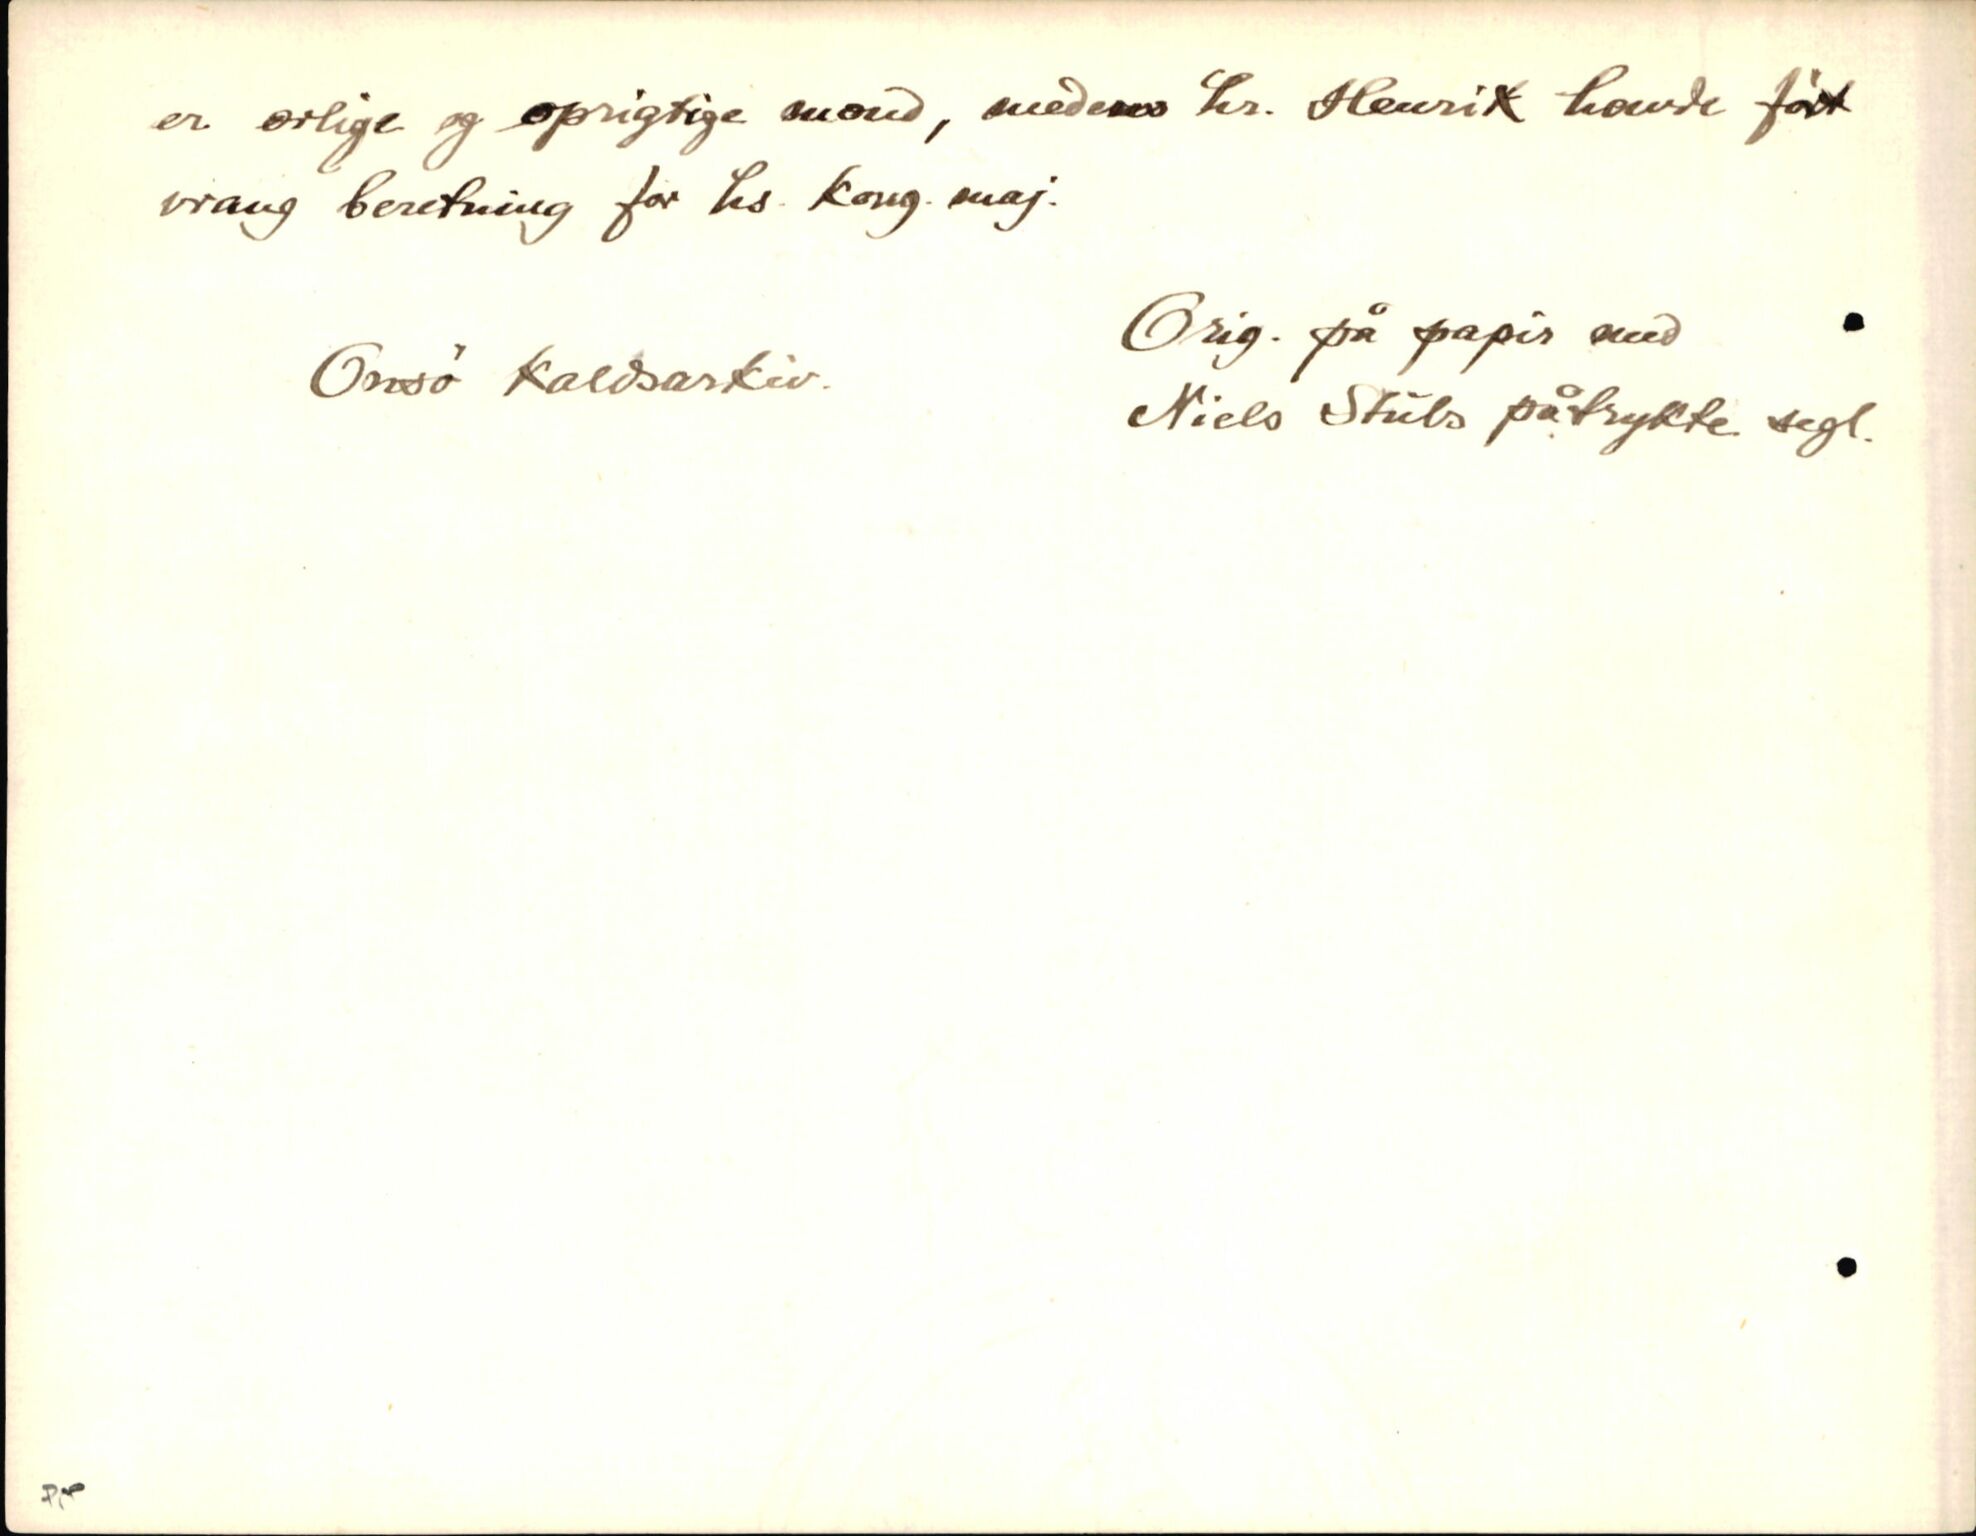 er ærlige og oprigtige mænd, medens hr. Henrik havde ført
vrang beretning for hs. kong. maj.
Orig. på papir med
Onsö kaldsarkiv.
Niels Stubs påtrykte segl.